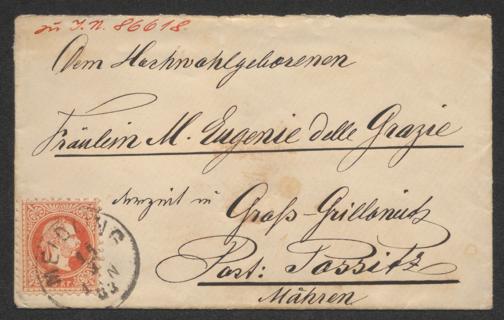 zu I.N. 86618.
Dem Hochwohlgeborenen
Fräulein M. Eugenie delle Grazie
in Groß-Grillowitz
Post: Possitz
Mähren
MEIDLING